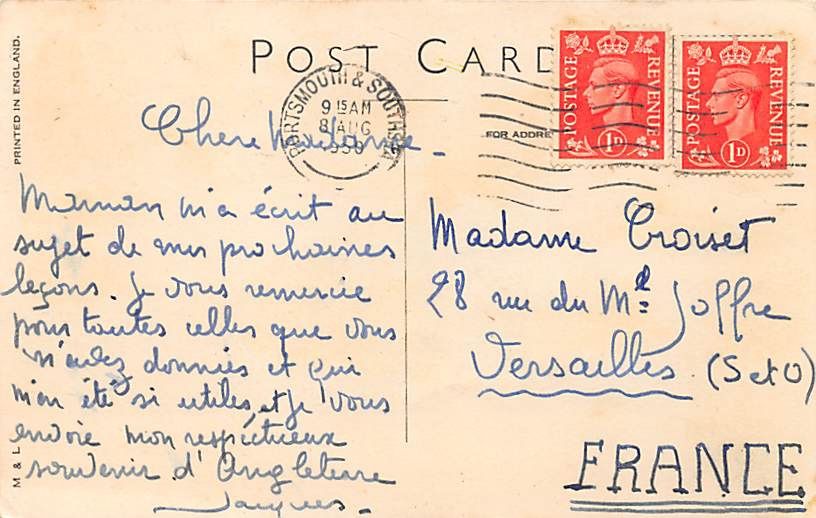 POST CARD
PRINTED IN ENGLAND.
PORTSMOUTH & SOUTHSEA
9 15 AM
8 AUG
1950
FOR ADDRE
POSTAGE REVENUE
1D
POSTAGE REVENUE
1D
Chere Madame -
Maman m'a écrit au
sujet de mes prochaines
leçons. Je vous remercie
pour toutes celles que vous
m'avez données et qui
m'ont été si utiles, et je vous
envoie mon respectueux
souvenir d'Angleterre
Jacques -
M & L
Madame Croiset
28 rue du Mal Joffre
Versailles (S et O)
FRANCE